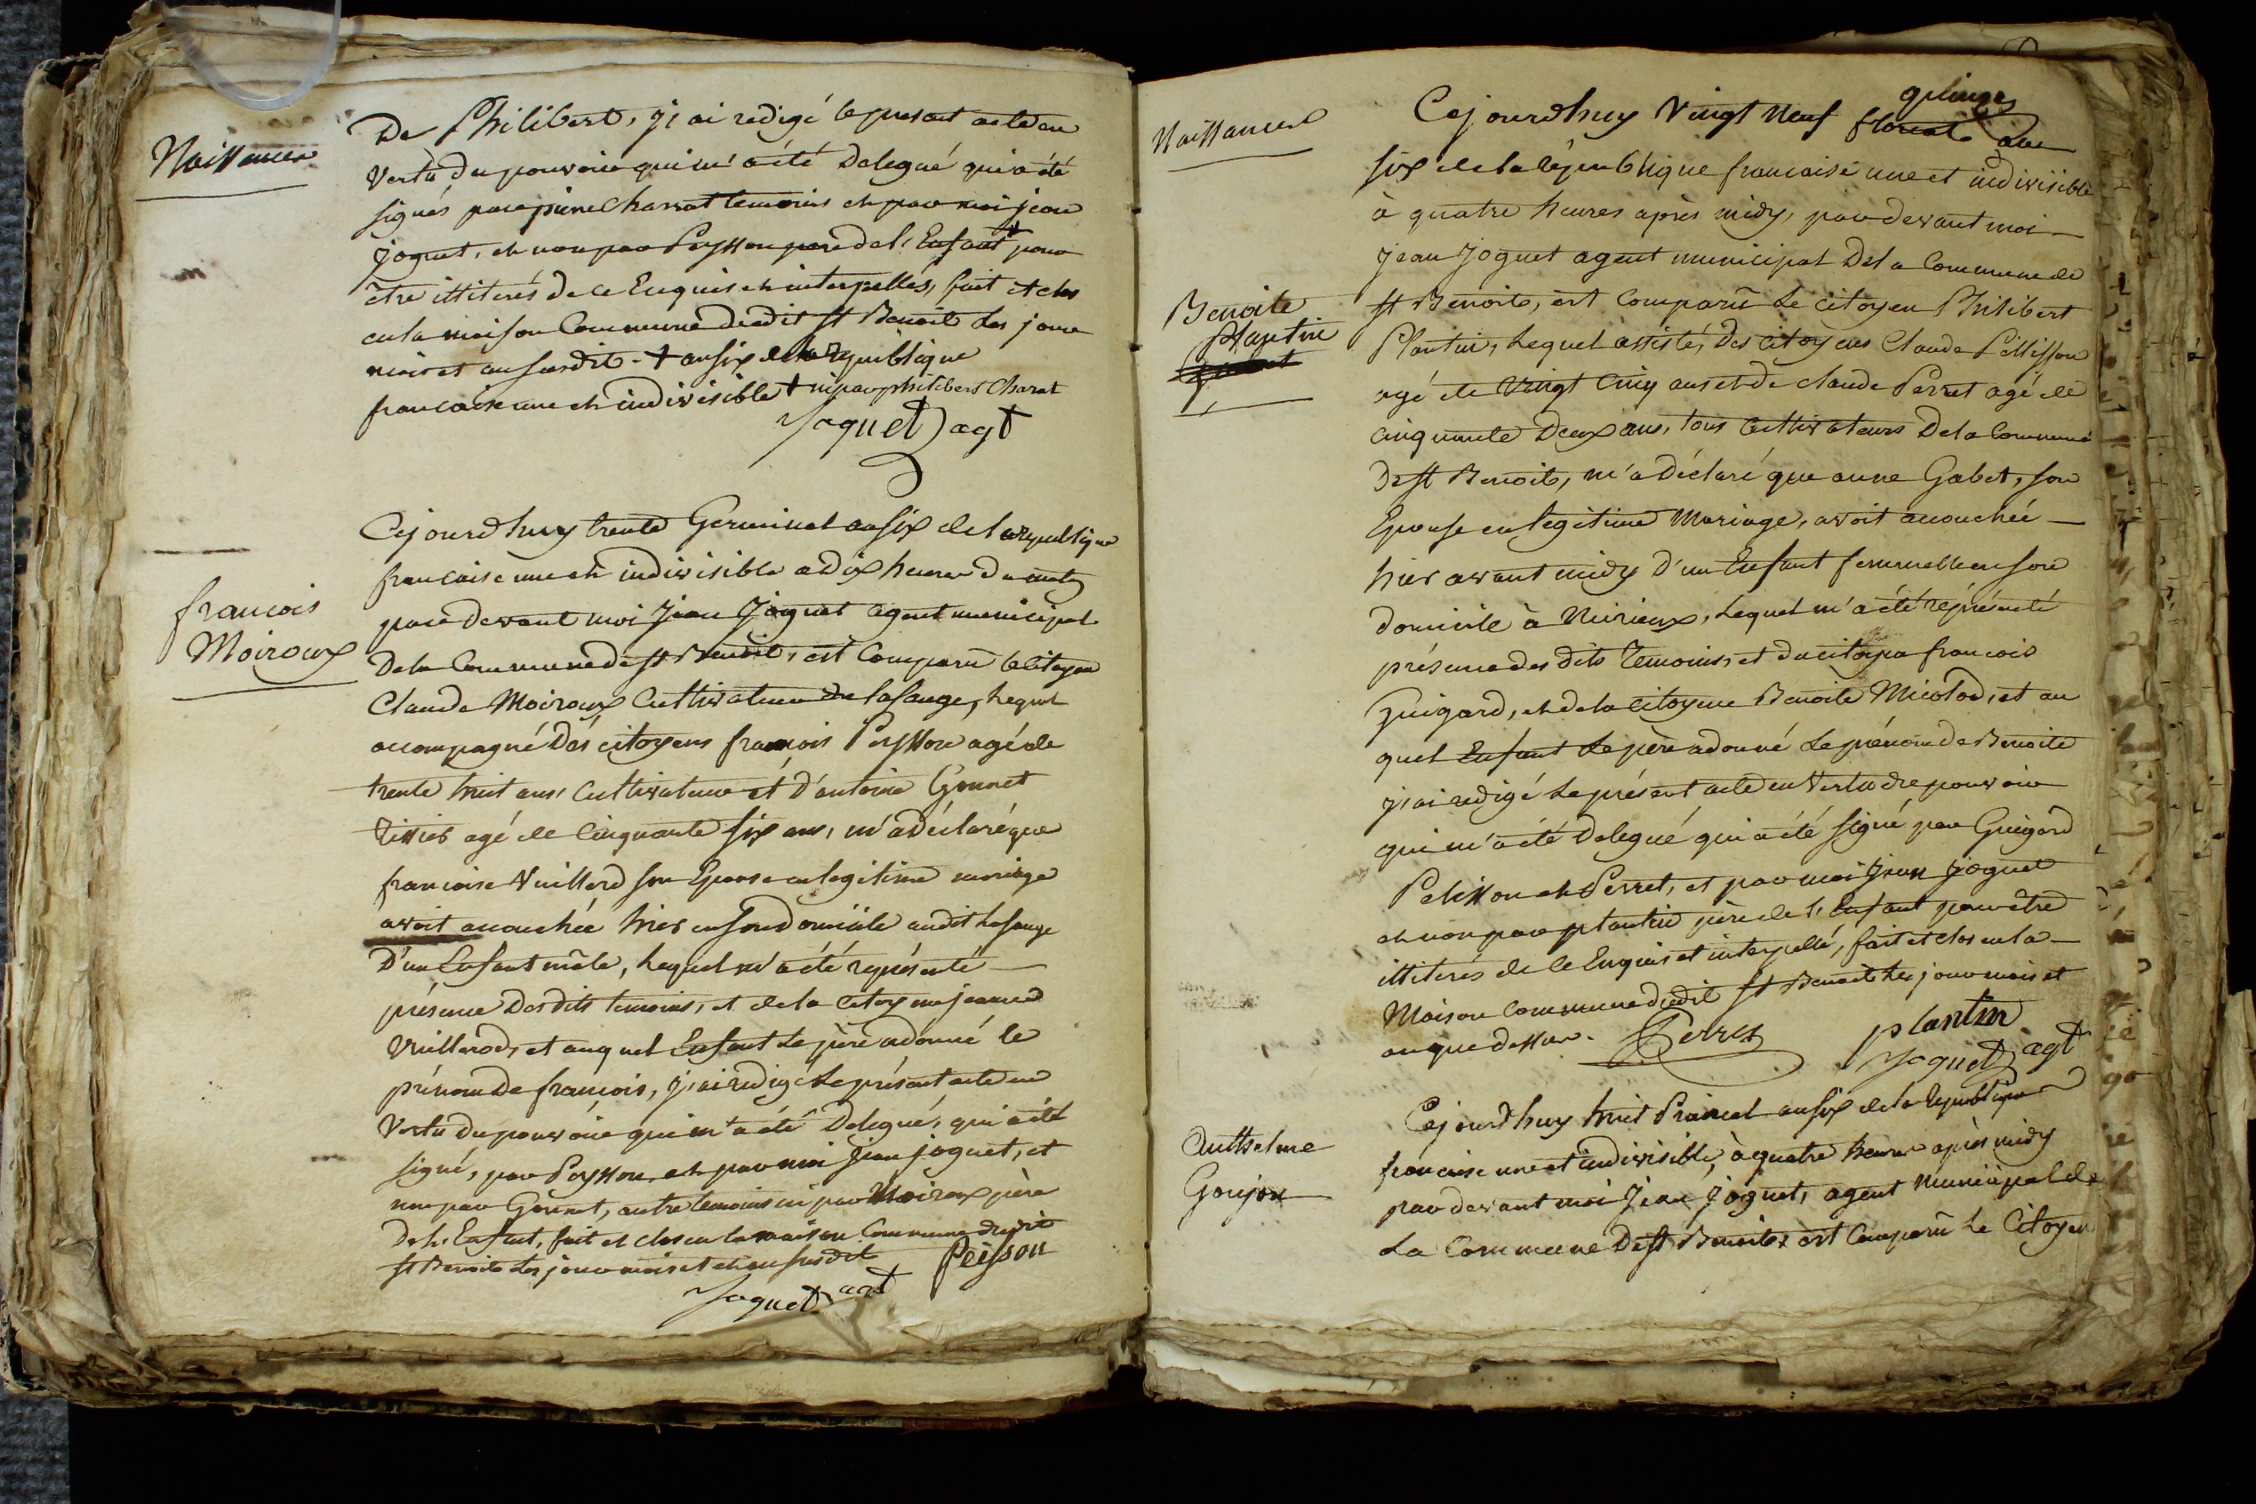 Naissances
De Philibert, j'ai redigé le present acte en
vertu du pouvoir qui m'a été Delegué qui a été
signés par pierre Charrat temoins et par moi jean
joguet, et non par Peysson pere de l'Enfant + pour
être illiterés de ce Enquis et interpellés, fait et clos
en la maison Commune dudit St Benoit Les jour
mois et an susdit + an six de la republique
francaise une et indivisible + ni par philibert Charat
Joguet agt
francois
Moiroux
Cejourdhuy trente Germinal an six de la republique
francaise une et indivisible a dix heures du matin
par devant moi Jean Joguet agent municipal
De la Commune de St Benoit, est Comparu le citoyen
Claude Moiroux Cultivateur de lasauge, Lequel
accompagné Dés citoyens francois Peysson agé de
trente huit ans, Cultivateur et d'antoine Gonnet
Tissier agé de Cinquante six ans, m'a déclaré que
francoise Vuillerd son Epouse en legitime mariage
avoit accouchée hier en son Domicile audit Lasauge
D'un Enfant mâle, Lequel m'a été représenté
présence Des dits temoins, et de la Citoyenne jeanne
Vuillerod, et auquel Enfant Le père a donné le
prénom De francois, j'ai redigé Le présent acte en
Vertu Du pouvoir qui m'a été Delegué, qui a été
signé, par Peysson, et par moi Jean joguet, et
non par Gonnet, autre temoins ni par Moiroux père
De L'Enfant, fait et clos en la maison Commune dudit
St Benoits Les jour mois et et an susdit
Peisson
Joguet agt
Naissances
Cejourdhuy Vingt Neuf floreal an
six de la république francaise une et indivisible
à quatre heures après midy, par devant moi
Jean Joguet agent municipal De la Commune de
St Benoits, est Comparu Le citoyen Philibert
Plantin, Lequel assisté, Des citoyens Claude Pellisson
agé de Vingt Cinq ans et de claude Perret agé de
cinquante Deux ans, tous Cultivateurs De la Commune
De St Benoits, m'a Déclaré que anne Gabet, son
Epouse en legitime Mariage, avoit accouchée
hier avant midy D'un Enfant femmelle en son
domicile à Nirieux, Lequel m'a été représenté
présence des dits temoins, et du citoyen francois
Guigard, et de la citoyenne Benoite Micolod, et au
quel Enfant Le père a donné Le prénom de Benoite
j'ai redigé Le présent acte en Vertu de pouvoir
qui m'a été Delegué qui a été signé par Guigard
Pelisson et Perret, et par moi Jean Joguet
et non par plantin père de L'Enfant pour être
illiterés de ce Enquis et interpellé, fait et clos en la
Maison Commune dudit St Benoit Les jour mois et
an que dessus. Perret plantin
Joguet agt
Benoite
Plantin
Anthelme
Goujon
Cejourdhuy huit Prairial an six de la Republique
francaise une et indivisible, à quatre heures après midy
par devant moi Jean Joguet, agent Municipal de
La Commune De St Benoits est Comparu Le Citoyen